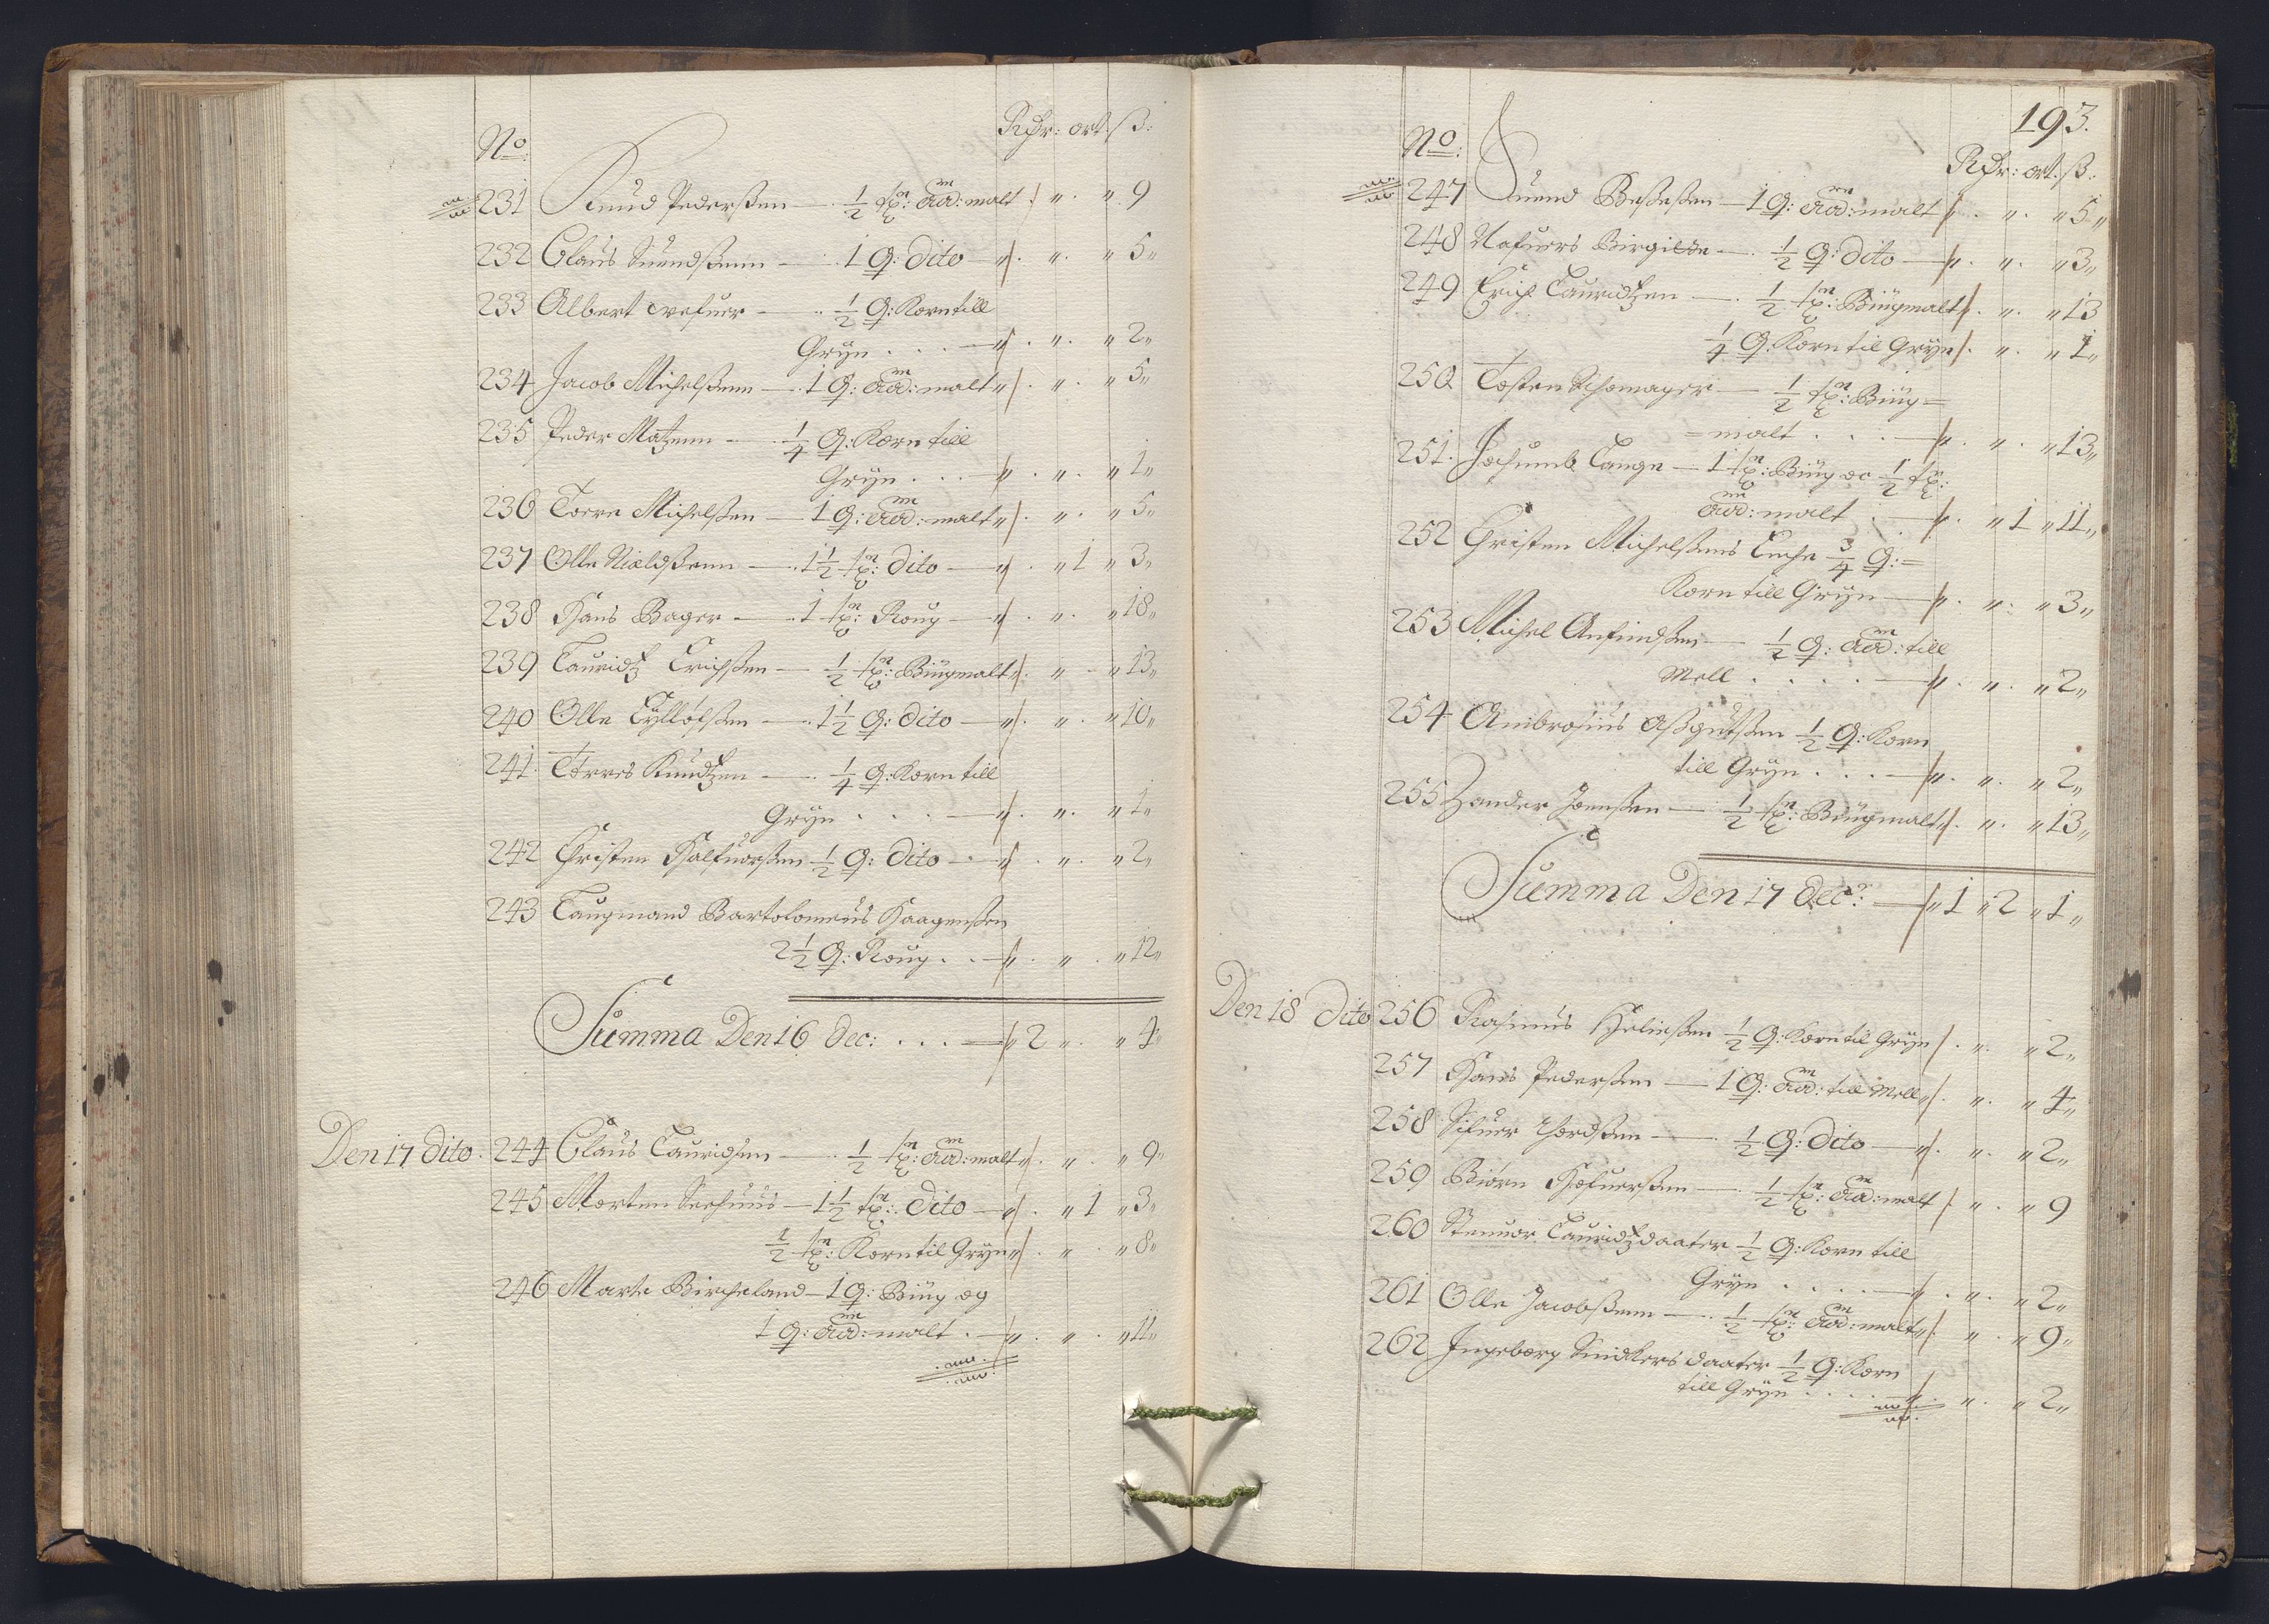 No: Rdr: ort. ß:
231 Knud Pederßen — 1/2 tn: Aad: malt " " 9
232 Claus Suendßenn — 1 Q: dito — " " 5
233 Albert — 1/2 Q: Korn till
Gryn . . . — " " 2
234 Jacob Michelßenn — 1 Q: Aad: malt " " 5
235 Peder Matzenn — 1/4 Q: Korn till
Gryn . . . — " " 1
236 Torre Michelßen — 1 Q: Aad: malt " " 5
237 Olle Nieldßenn — 1 1/2 tn: dito — " 1 " 3
238 Hans Bager — 1 tn: Roug — " " 18
239 Lauridtz Erichßen — 1/2 tn: Biugmalt " " 13
240 Olle Tylløfßen — 1 1/2 Q: dito — " " 10
241 Torres Knudtzen — 1/4 Q: Korn till
Gryn . . . — " " 1
242 Christen Halfuorßen 1/2 Q: dito — " " 2
243 Laugmand Bartolomeus Haagenßen
2 1/2 Q: Roug . . — " " 12
Summa Den 16 dec: . . . — 2 " " 4
Den 17 dito. 244 Claus Lauridsen — 1/2 tn: Aad: malt " " 9
245 Morten Seehuus — 1 1/2 tn: dito — " 1 " 3
1/2 tn: Korn til Gryn " " 8
246 Marte Bircheland — 1 Q: Biug og
1 Q: Aad: malt . — " " 11
193.
No: Rdr: ort. ß:
247 Suend Beßeßen — 1 Q: Aad: malt " " 5
248 Birgilde — 1/2 Q: dito — " " 3
249 Erich Lauridtzen — 1/2 tn: Biugmalt " " 13
1/4 Q: Korn til Gryn " " 1
250 Tosten Schomager — 1/2 tn: Biug=
=malt . . . — " " 13
251. Jochumb Lange — 1 tn: Biug oc 1/2 tn:
Aad: malt . — " 1 " 11
252 Christen Michelßens Enche 3/4 Q: =
Korn till Gryn — " " 3
253 Michel Anfindßen — 1/2 Q: Aad: till
Mell . . . . — " " 2
254 Ambrosius Aßgutßen 1/2 Q: Korn
till Gryn . . . — " " 2
255 Zander Joenßen — 1/2 tn: Biugmalt " " 13
Summa Den 17 dec: — 1 " 2 " 1
Den 18 dito 256 Rasmus Heließen 1/2 Q: Korn til Gryn " " 2
257 Hans Pederßen — 1 Q: Aad: till Mell " " 4
258 Sifuer Tordßen — 1/2 Q: dito — " " 2
259 Biørn Hofuerßen — 1/2 tn: Aad: malt " " 9
260 Steuor Lauridtzdaater 1/2 Q: Korn till
Gryn . . . . — " " 2
261 Olle Jacobßenn — 1/2 tn: Aad: malt " " 9
262 Ingeborg daater 1/2 Q: Korn
till Gryn . . . . — " " 2